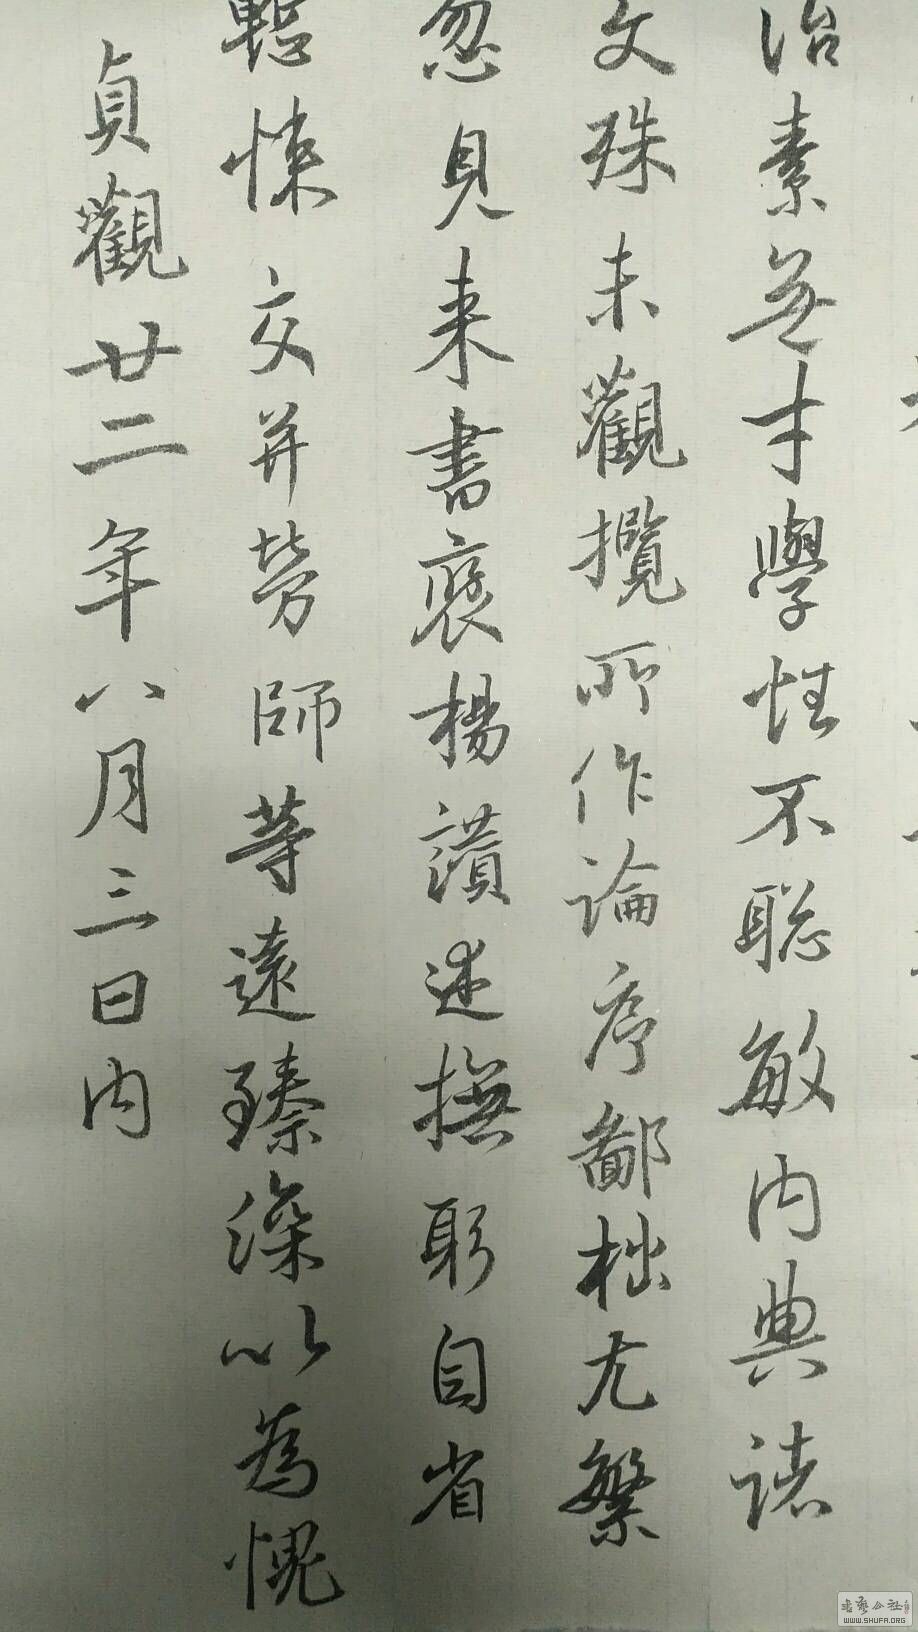 治素無才學性不聡敏内典諸
文殊未觀攬所作論序鄙拙尤繁
忽見来書褒楊讃述撫躬自省
慙悚交并勞師等遠臻深以為愧
貞觀廿二年八月三日内
WWW.SHUFA.ORG